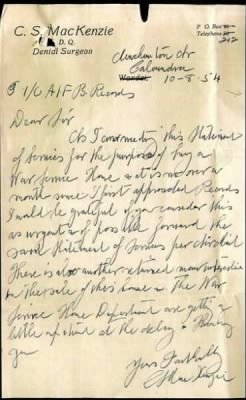 C. S. MacKenzie
D. Q.
Dental Surgeon
P. O. Box
Telephone
212
Caloundra
10-8-54
I/C A.I.F. Records
Dear Sir
As I am this Statement
of Services for the purpose of buying a
War Service Home & it is now over a
month since I first approached Records
I would be grateful if you consider this
as urgent & if possible forward the
said Statement of Services per
There is also another returned man
in the sale of this house & the War
Service Home Department are getting a
little at the delay. Thanking
you
Yours Faithfully
C S MacKenzie